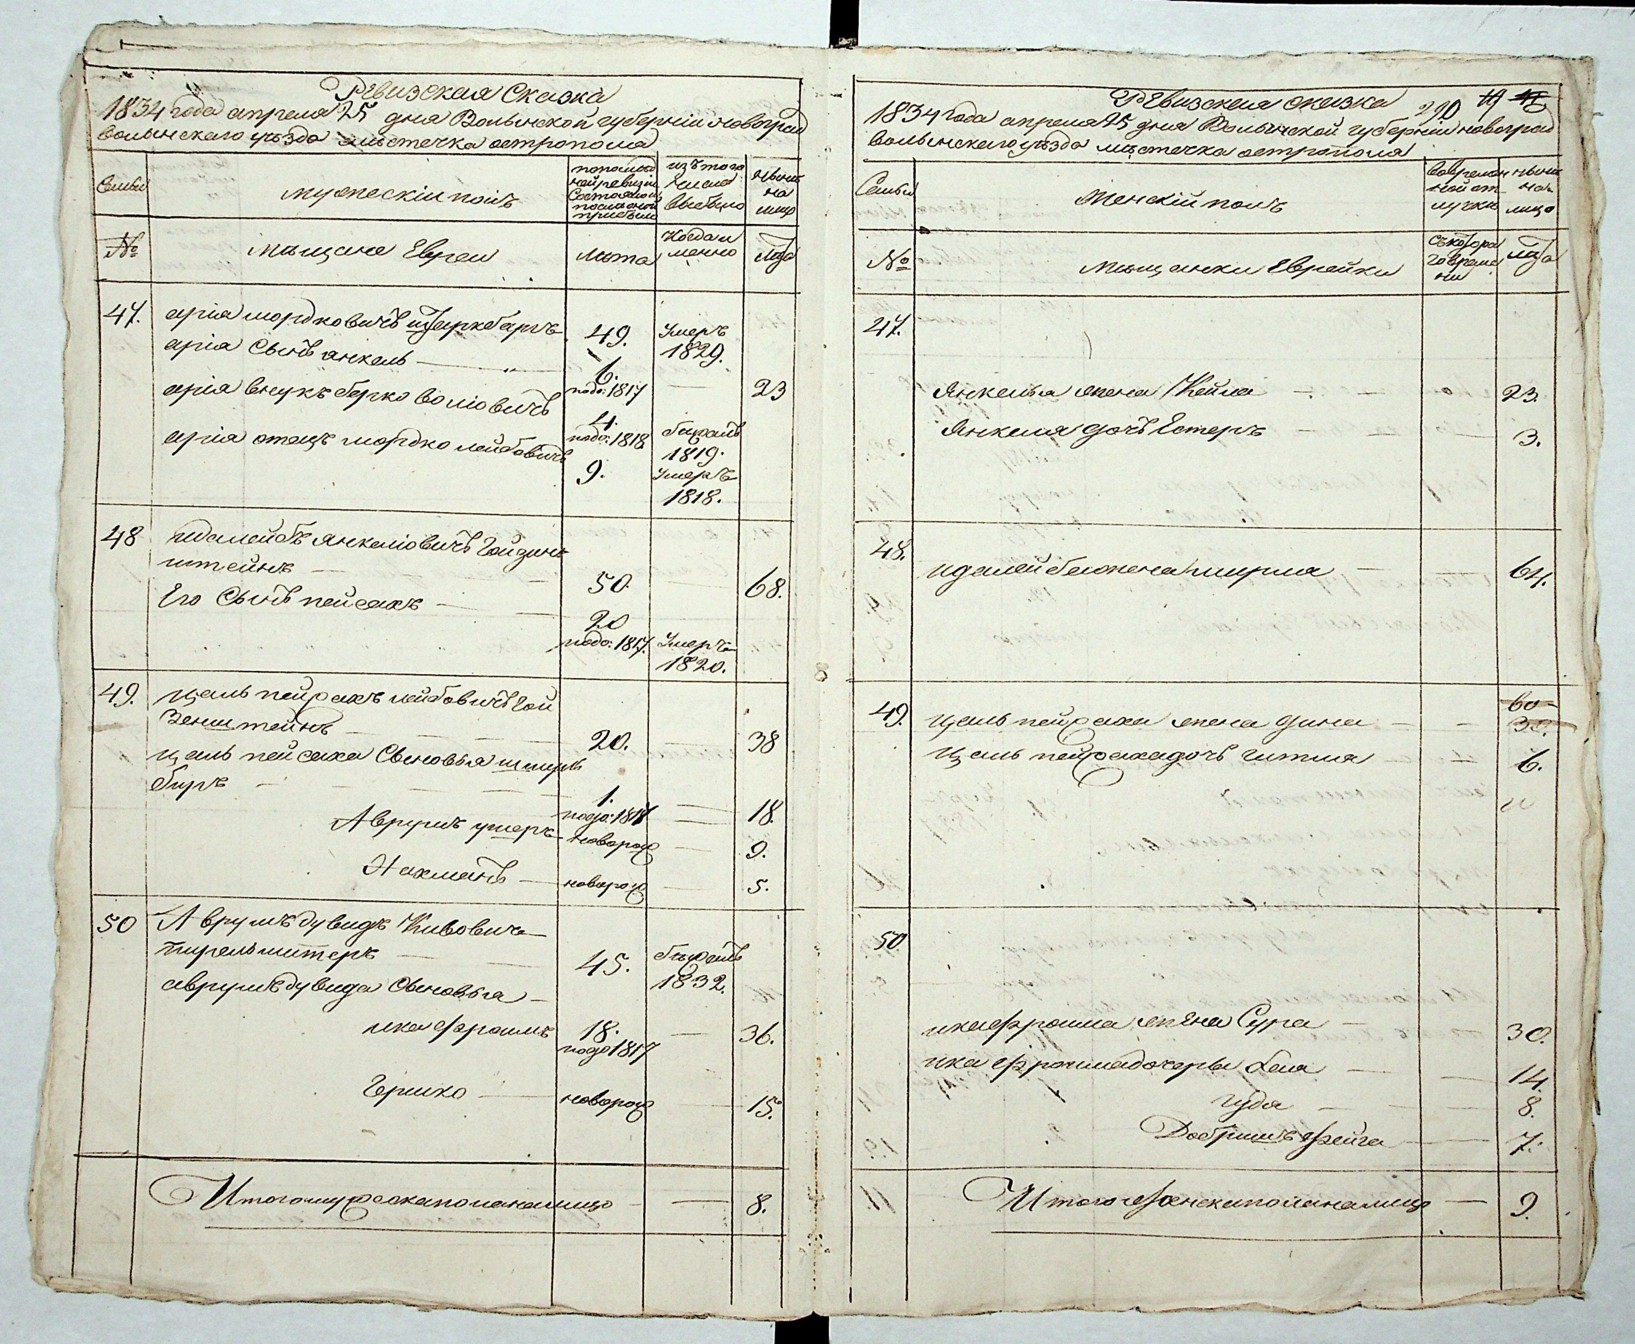 Ревизская Сказка
1834 года апреля 25 дня Волынской губернии новоград
волынскаго уезда местечка острополя
Семьи
мужескiй полъ
по последней ревизiи
Состояло и
после оной
прибыло
изъ того
числа
выбыло
ныне
на
лицо
№
мещане Евреи
лета
Когда и
менно
лета
47. арiя мордковичъ 49. умеръ
1829.
арiя Сынъ янкель 6.
подо: 1817 23
арiя внукъ берко волiовичъ 4.
подо: 1818 бежалъ
1819.
арiя отецъ мордко лейбовичъ 9. умеръ
1818.
48 идалейбъ янкелiовичъ Гойзин
штейнъ 50. 68.
Его Сынъ пейсахъ 20
подо: 1817. умеръ
1820.
49. цаль пейсахъ лейбовичъ Гой
зенштейнъ 20. 38
цаль пейсаха Сыновья шмуль
беръ 1.
подо: 1817 18.
Аврумъ ушеръ новорож 9.
Нахманъ новорож 5.
50 Аврумъ дувидъ Кивовичъ
45. бежалъ
1832.
аврумъ дувида Сыновья
ика Фроимъ 18.
подо 1817 36.
Гершко новорож 15.
Итого мужеска пола на лицо 8.
Ревизская сказка 290
1834 года апреля 25 дня Волынской губернии новоград
волынскаго уезда местечка острополя
Семьи
Женскiй полъ
во времен
ной от
лучке
ныне
на
лицо
№
мещански Еврейки
съ котора
го време
ни
лета
47.
Янкеля жена Кейла 23.
Янкеля дочь Естеръ 3.
48.
идалейба жена ширля 64.
49. цаль пейсаха жена дина 38.
цаль пейсаха дочь гитля 6.
50.
ика фроима жена Сура 30.
ика фроима дочеры Хая 14.
гудя 8.
Добришъ Фейга 7.
Итого женска пола на лицо 9.